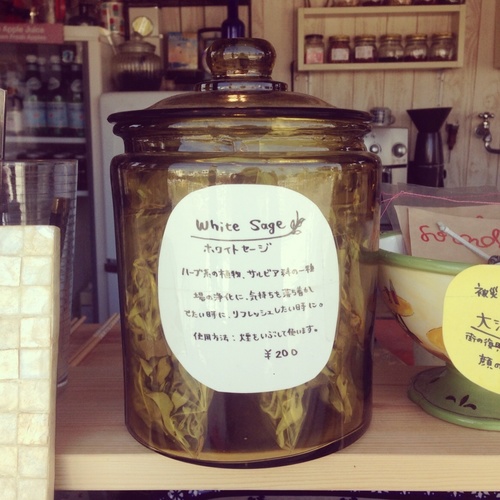 Apple Juice
White Sage
ホワイトセージ
ハーブ系の植物、サルビア科の一種
場の浄化に、気持ちを落ち着か
せたい時に、リフレッシュしたい時に。
使用方法：煙をいぶして使います。
¥200